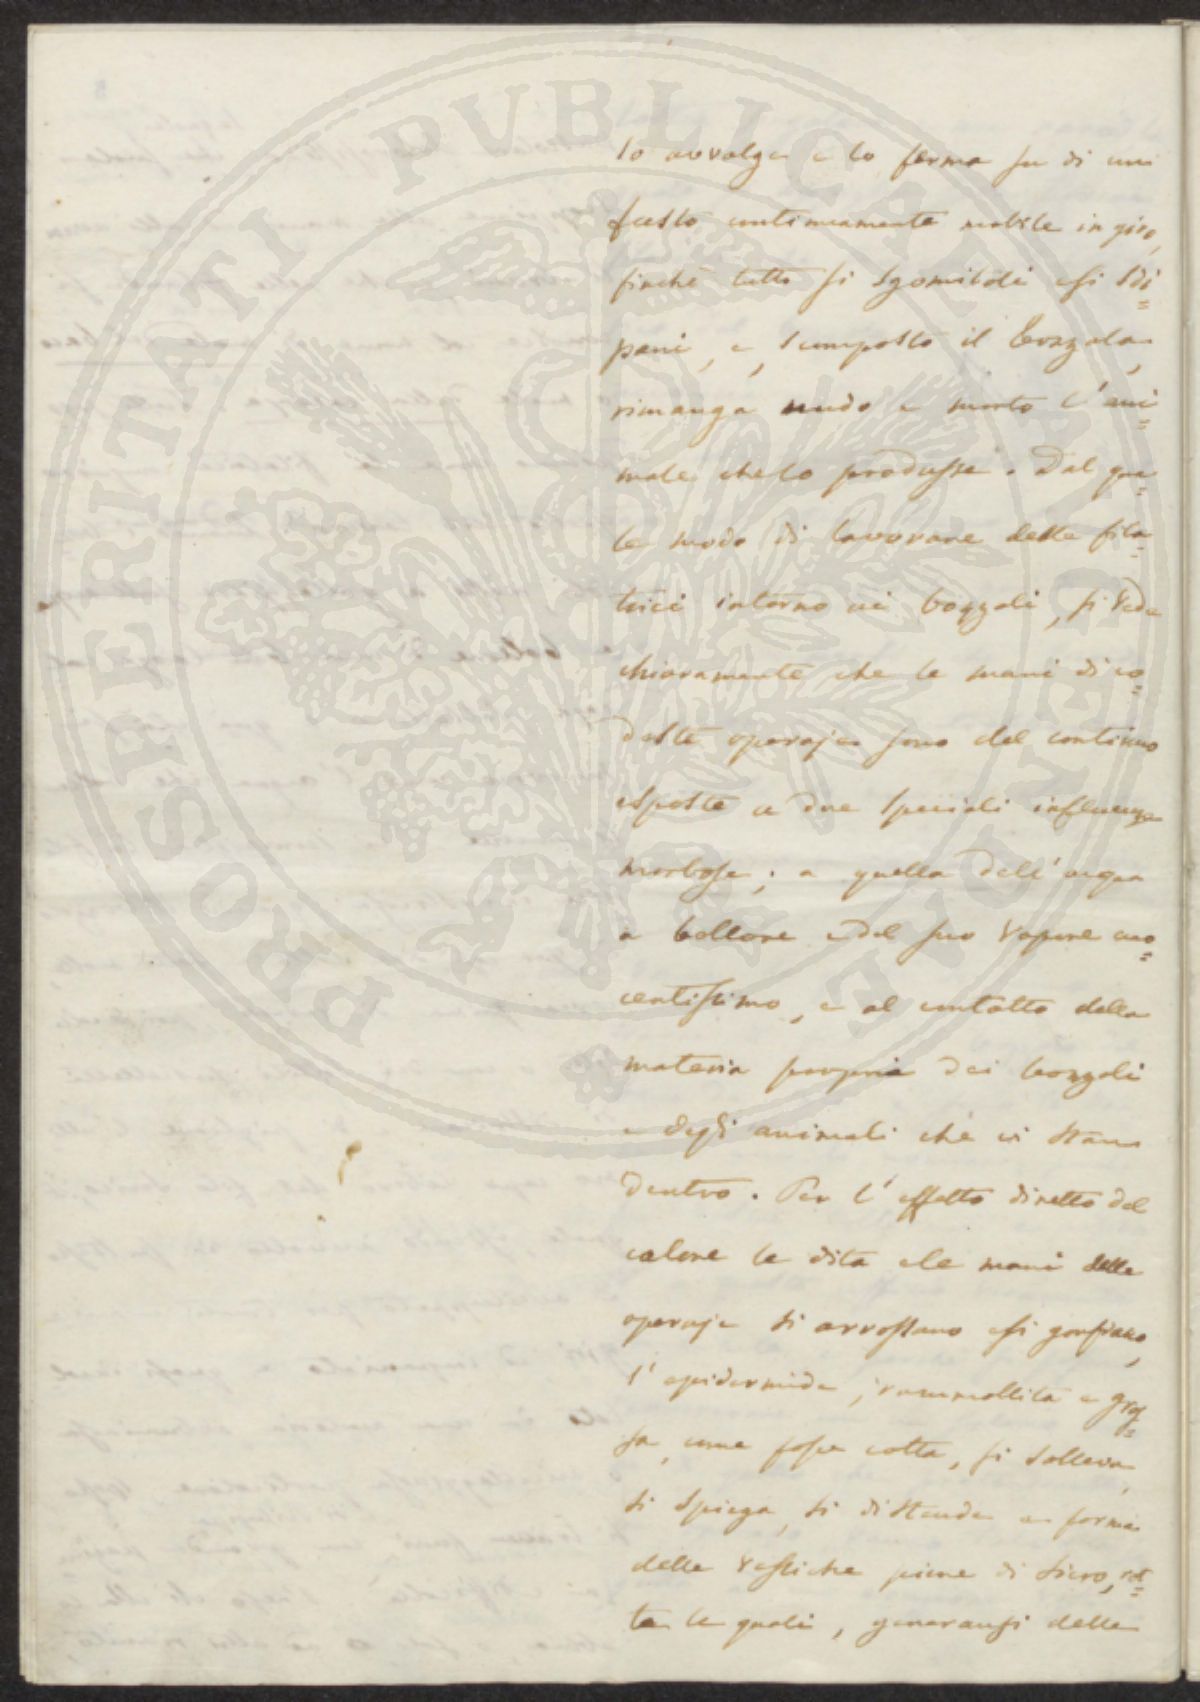 lo avvolge e lo ferma su di un
fusto continuamente mobile in giro,
finché tutto si sgomitoli e si di=
pani, e, scomposto il bozzolo,
rimanga nudo e morto l'ani=
male che lo produsse. Dal qua=
le modo di lavorare delle fila=
trici intorno ai bozzoli, si vede
chiaramente che le mani di co=
deste operaje sono del continuo
esposte a due speciali influenze
morbose; a quella dell'acqua
a bollore e del suo vapore cuo=
centissimo, e al contatto della
materia propria dei bozzoli
e degli animali che vi stan
dentro. Per l'effetto diretto del
calore le dita e le mani delle
operaje si arrossano e si gonfiano,
l'epidermide, rammollita e gros=
sa, come fosse cotta, si solleva,
si spiega, si distende e forma
delle vessiche piene di siero, rot=
te le quali, generansi delle
PROSPERITATI PUBLICAE AUGENDAE